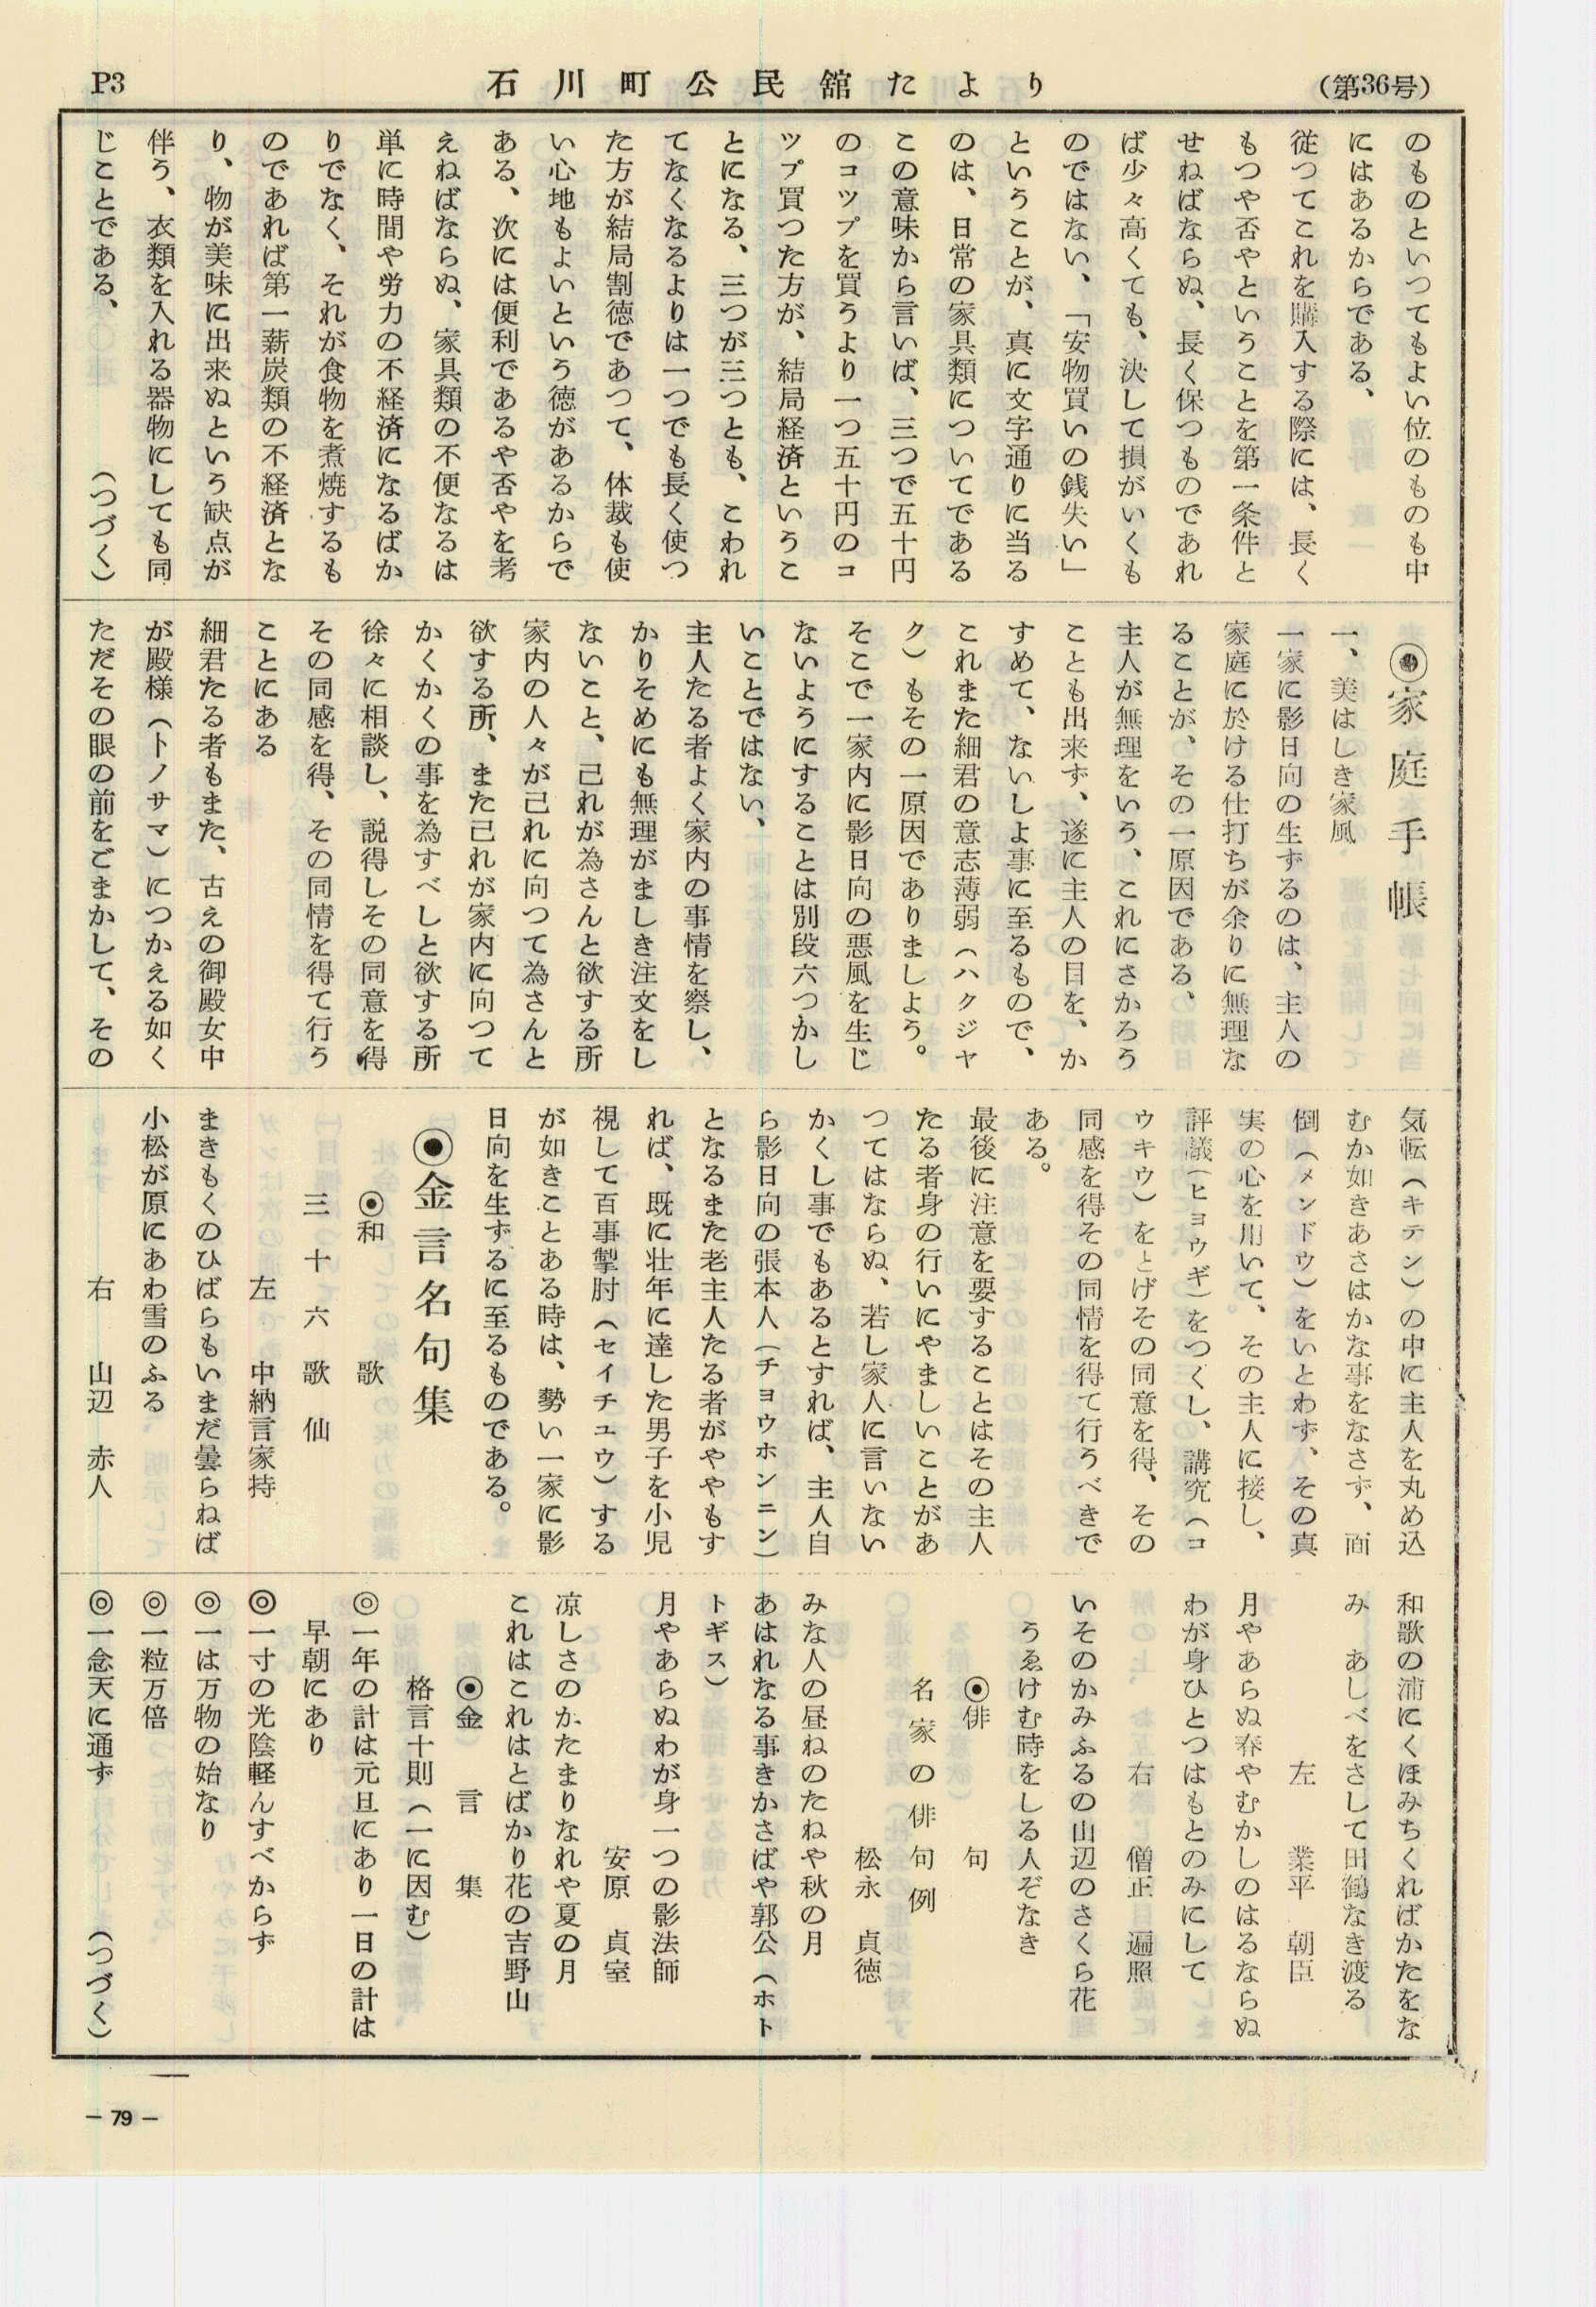 (第36号)
石川町公民舘たより
P3
のものといつてもよい位のものも中
にはあるからである、
従つてこれを購入する際には、長く
もつや否やということを第一条件と
せねばならぬ、長く保つものであれ
ば少々高くても、決して損がいくも
のではない、「安物買いの銭失い」
ということが、真に文字通りに当る
のは、日常の家具類についてである
この意味から言いば、三つで五十円
のコツプを買うより一つ五十円のコ
ツプ買つた方が、結局経済というこ
とになる、三つが三つとも、こわれ
てなくなるよりは一つでも長く使つ
た方が結局割徳であつて、体裁も使
い心地もよいという徳があるからで
ある、次には便利であるや否やを考
えねばならぬ、家具類の不便なるは
単に時間や労力の不経済になるばか
りでなく、それが食物を煮焼するも
のであれば第一薪炭類の不経済とな
り、物が美味に出来ぬという缺点が
伴う、衣類を入れる器物にしても同
じことである、　　　　(つづく)
◉家庭手帳
一、美はしき家風
一家に影日向の生ずるのは、主人の
家庭に於ける仕打ちが余りに無理な
ることが、その一原因である、
主人が無理をいう、これにさかろう
ことも出来ず、遂に主人の目を、か
すめて、ないしよ事に至るもので、
これまた細君の意志薄弱(ハクジヤ
ク)もその一原因でありましよう。
そこで一家内に影日向の悪風を生じ
ないようにすることは別段六つかし
いことではない、
主人たる者よく家内の事情を察し、
かりそめにも無理がましき注文をし
ないこと、己れが為さんと欲する所
家内の人々が己れに向つて為さんと
欲する所、また己れが家内に向つて
かくかくの事を為すべしと欲する所
徐々に相談し、説得しその同意を得
その同感を得、その同情を得て行う
ことにある
細君たる者もまた、古えの御殿女中
が殿様(トノサマ)につかえる如く
ただその眼の前をごまかして、その
気転(キテン)の中に主人を丸め込
むか如きあさはかな事をなさず、面
倒(メンドウ)をいとわず、その真
実の心を用いて、その主人に接し、
評議(ヒョウギ)をつくし、講究(コ
ウキウ)をとげその同意を得、その
同感を得その同情を得て行うべきで
ある。
最後に注意を要することはその主人
たる者身の行いにやましいことがあ
つてはならぬ、若し家人に言いない
かくし事でもあるとすれば、主人自
ら影日向の張本人(チヨウホンニン)
となるまた老主人たる者がややもす
れば、既に壮年に達した男子を小児
視して百事掣肘(セイチユウ)する
が如きことある時は、勢い一家に影
日向を生ずるに至るものである。
◉金言名句集
◉和　　歌
三十六歌仙
左　中納言家持
まきもくのひばらもいまだ曇らねば
小松が原にあわ雪のふる
右　山辺　赤人
和歌の浦にくほみちくればかたをな
み　あしべをさして田鶴なき渡る
左　　業平　朝臣
月やあらぬ春やむかしのはるならぬ
わが身ひとつはもとのみにして
右　　僧正　遍照
いそのかみふるの山辺のさくら花
うゑけむ時をしる人ぞなき
◉俳　　句
名家の俳句例
松永　貞徳
みな人の昼ねのたねや秋の月
あはれなる事きかさばや郭公(ホト
トギス)
月やあらぬわが身一つの影法師
安原　貞室
凉しさのかたまりなれや夏の月
これはこれはとばかり花の吉野山
◉金　言　集
格言十則(一に因む)
◎一年の計は元旦にあり一日の計は
早朝にあり
◎一寸の光陰軽んすべからず
◎一は万物の始なり
◎一粒万倍
◎一念天に通ず　　　　(つづく)
― 79 ―